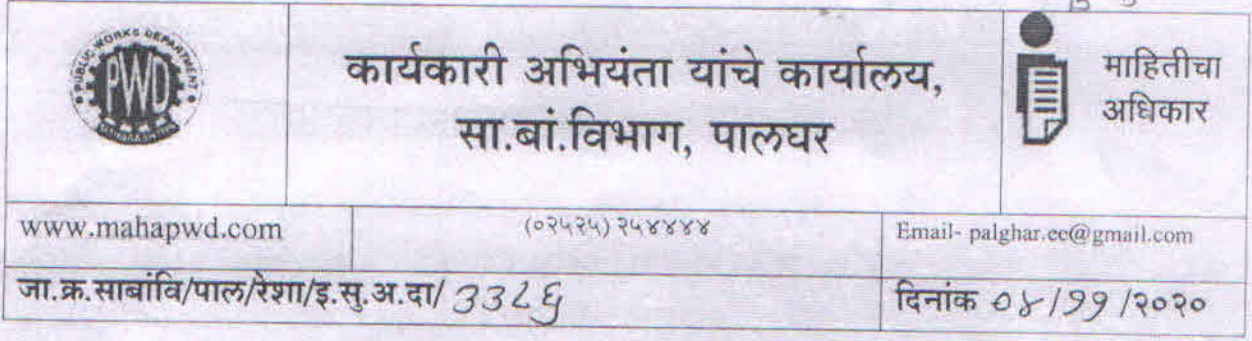 PUBLIC WORKS DEPARTMENT
PWD
कार्यकारी अभियंता यांचे कार्यालय,
सा.बां.विभाग, पालघर
माहितीचा
अधिकार
www.mahapwd.com
(०२५२५) २५४४४४
Email- palghar.ee@gmail.com
जा.क्र.साबांवि/पाल/रेशा/इ.सु.अ.दा/ ३३८६
दिनांक ०४/११/२०२०